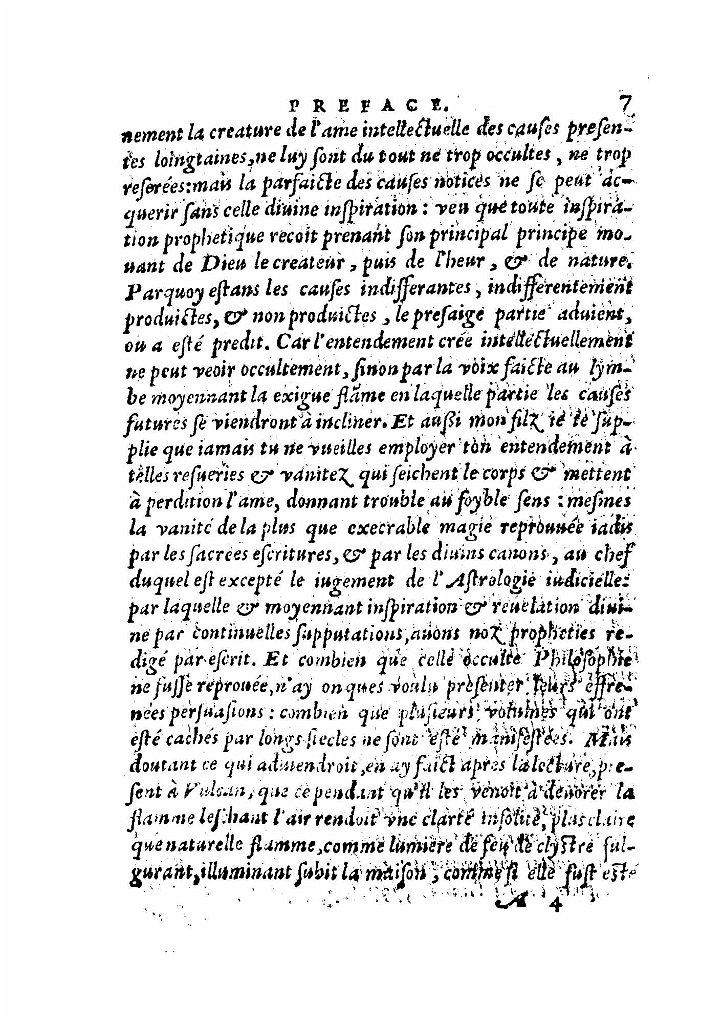 PREFACE. 7
nement la creature de l'ame intellectuelle des causes presen-
tes loingtaines, ne luy sont du tout ne trop occultes, ne trop
reserées: mais la parfaicte des causes notices ne se peut ac-
querir sans celle diuine inspiration: veu que toute inspira-
tion prophetique recoit prenant son principal principe mo-
uant de Dieu le createur, puis de l'heur, & de nature.
Parquoy estans les causes indifferantes, indifferentement
produictes, & non produictes, le presaige partie aduient,
ou a esté predit. Car l'entendement crée intellectuellement
ne peut veoir occultement, sinon par la voix faicte au lym-
be moyennant la exigue flãme en laquelle partie les causes
futures se viendront à incliner. Et aussi mon filz ie te sup-
plie que iamais tu ne vueilles employer ton entendement à
telles resueries & vanitez qui seichent le corps & mettent
à perdition l'ame, donnant trouble au foyble sens: mesmes
la vanité de la plus que execrable magie reprouuée iadis
par les sacrées escritures, & par les diuins canons, au chef
duquel est excepté le iugement de l'Astrologie iudicielle:
par laquelle & moyennant inspiration & reuelation diui-
ne par continuelles supputations, auons noz propheties re-
digé par escrit. Et combien que celle occulte Philosophie
ne fusse reprouée, n'ay onques voulu presenter leurs effre-
nées persuasions: combien que plusieurs volumes qui ont
esté cachés par longs siecles ne sont esté manifestées. Mais
doutant ce qui aduiendroit, en ay faict apres la lecture, pre-
sent à Vulcan, que ce pendant qu'il les venoit à deuorer la
flamme leschant l'air rendoit vne clarté insolite, plus claire
que naturelle flamme, comme lumiere de feu de clystre ful-
gurant, illuminant subit la maison, comme si elle fust esté
A 4